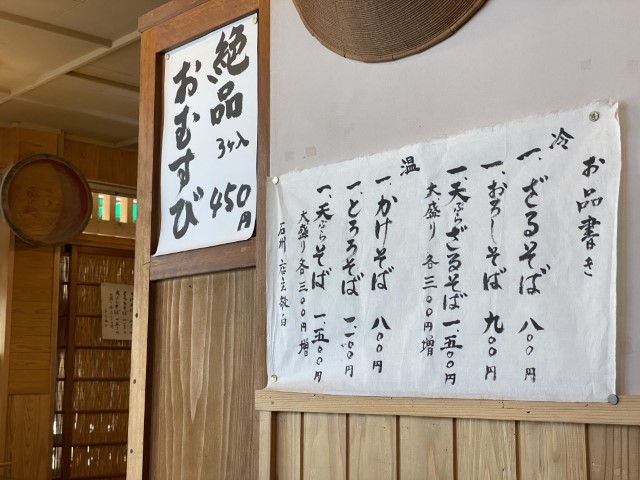 お品書き
冷
一、ざるそば 八〇〇円
一、おろしそば 九〇〇円
一、天ぷらざるそば 一、五〇〇円
大盛り 各三〇〇円増
温
一、かけそば 八〇〇円
一、とろろそば 一、一〇〇円
一、天ぷらそば 一、五〇〇円
大盛り各三〇〇円増
石州 店主敬白
絶品
3ヶ入
450円
おむすび